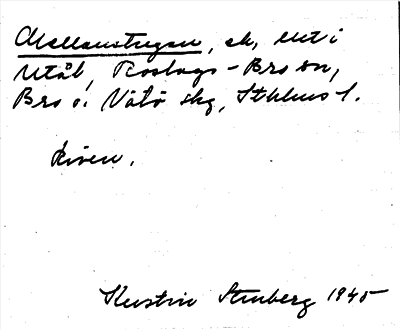 Mellanstugan, ek, ent i
Utål, Roslags-Bro sn,
Bro o. Vätö skg, Sthlms l.
Riven.
Kerstin Stenberg 1945